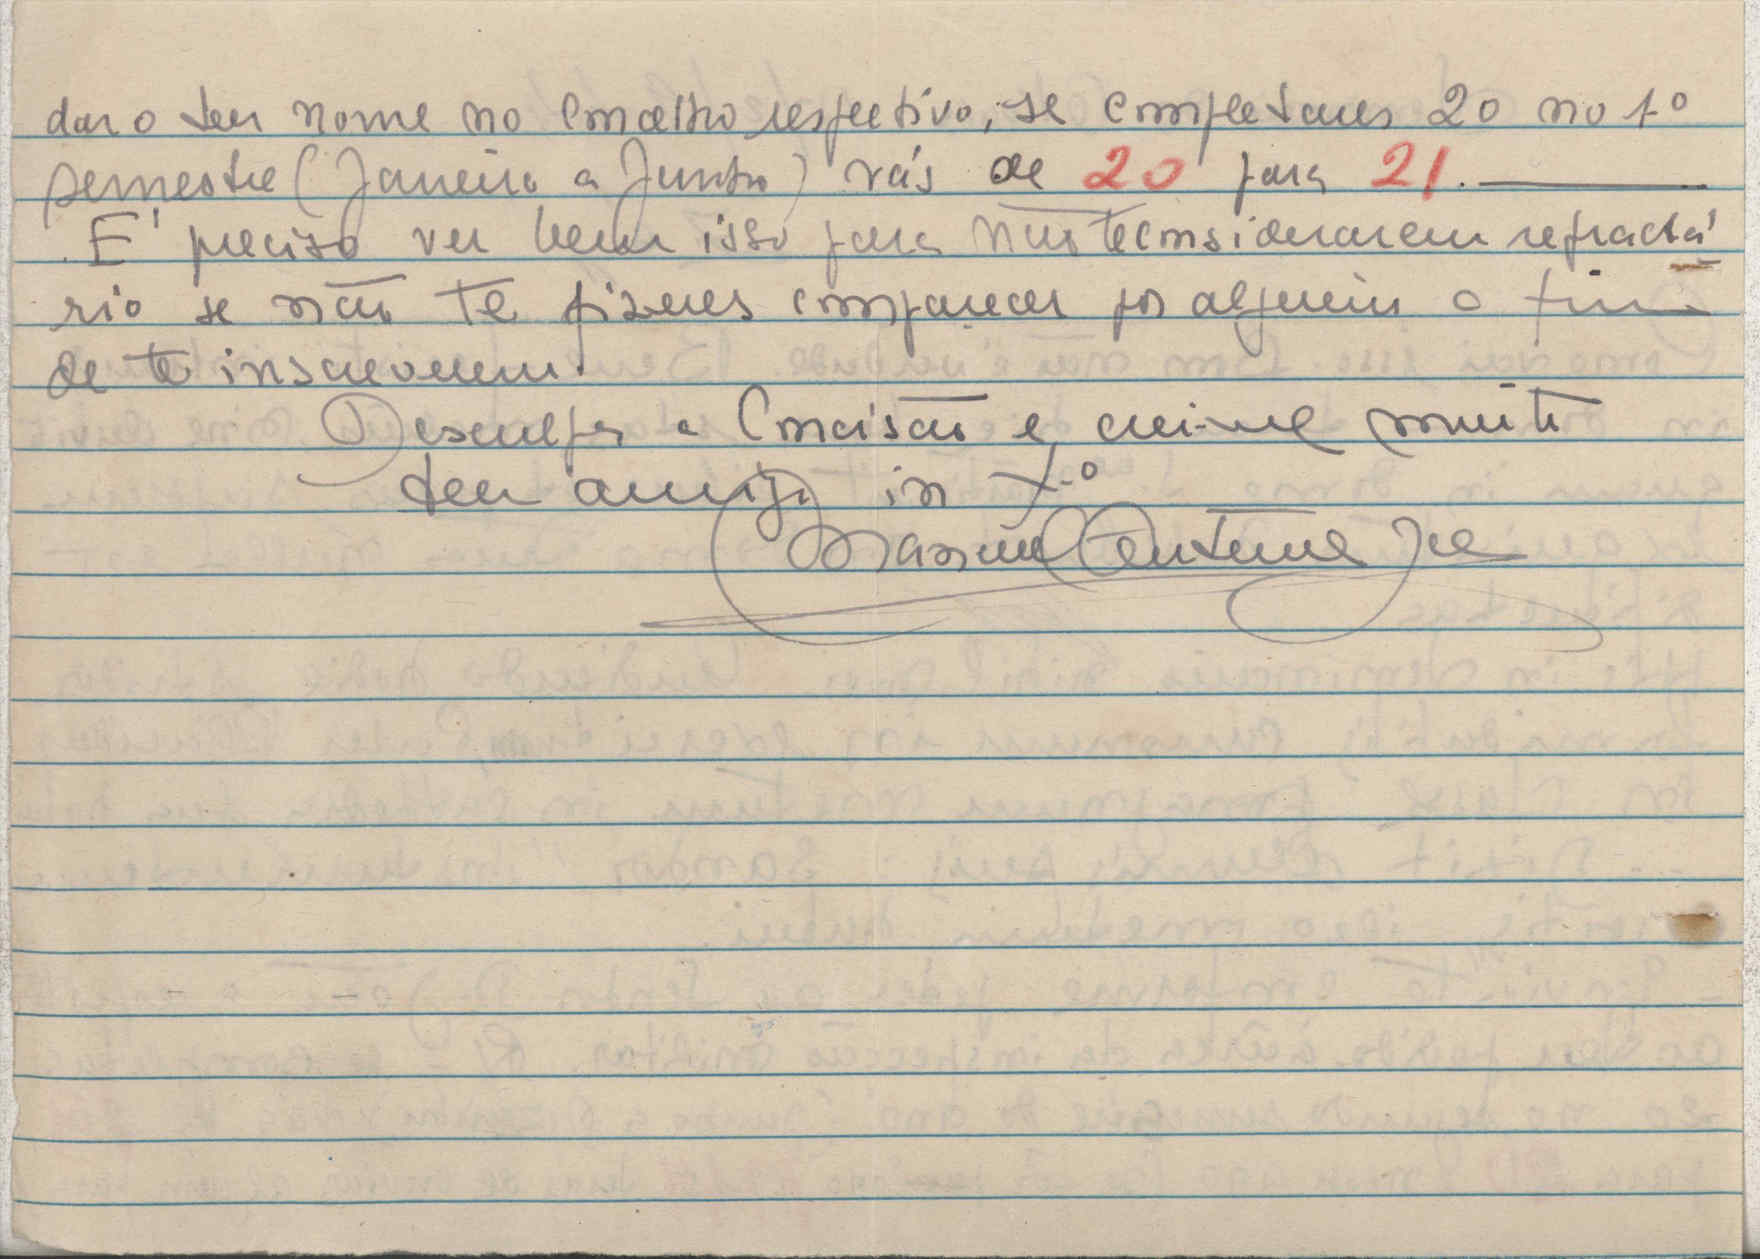 dar o teu nome no Concelho respectivo; se completares 20 no 1º
semestre (Janeiro a Junho) vás de 20 para 21.
É preciso ver bem isso para não te considerarem refractá
rio se não te fizeres comparecer por alguem a fim
de te inscreverem.
Desculpa a Concisão e crê-me muito
teu amigo in X.º
Manuel Antunes